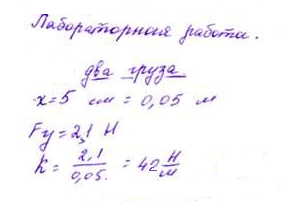 Лабораторная работа.
два груза
x=5 см = 0,05 м
Fy=2,1 Н
K = 2,1 / 0,05. = 42 Н/м